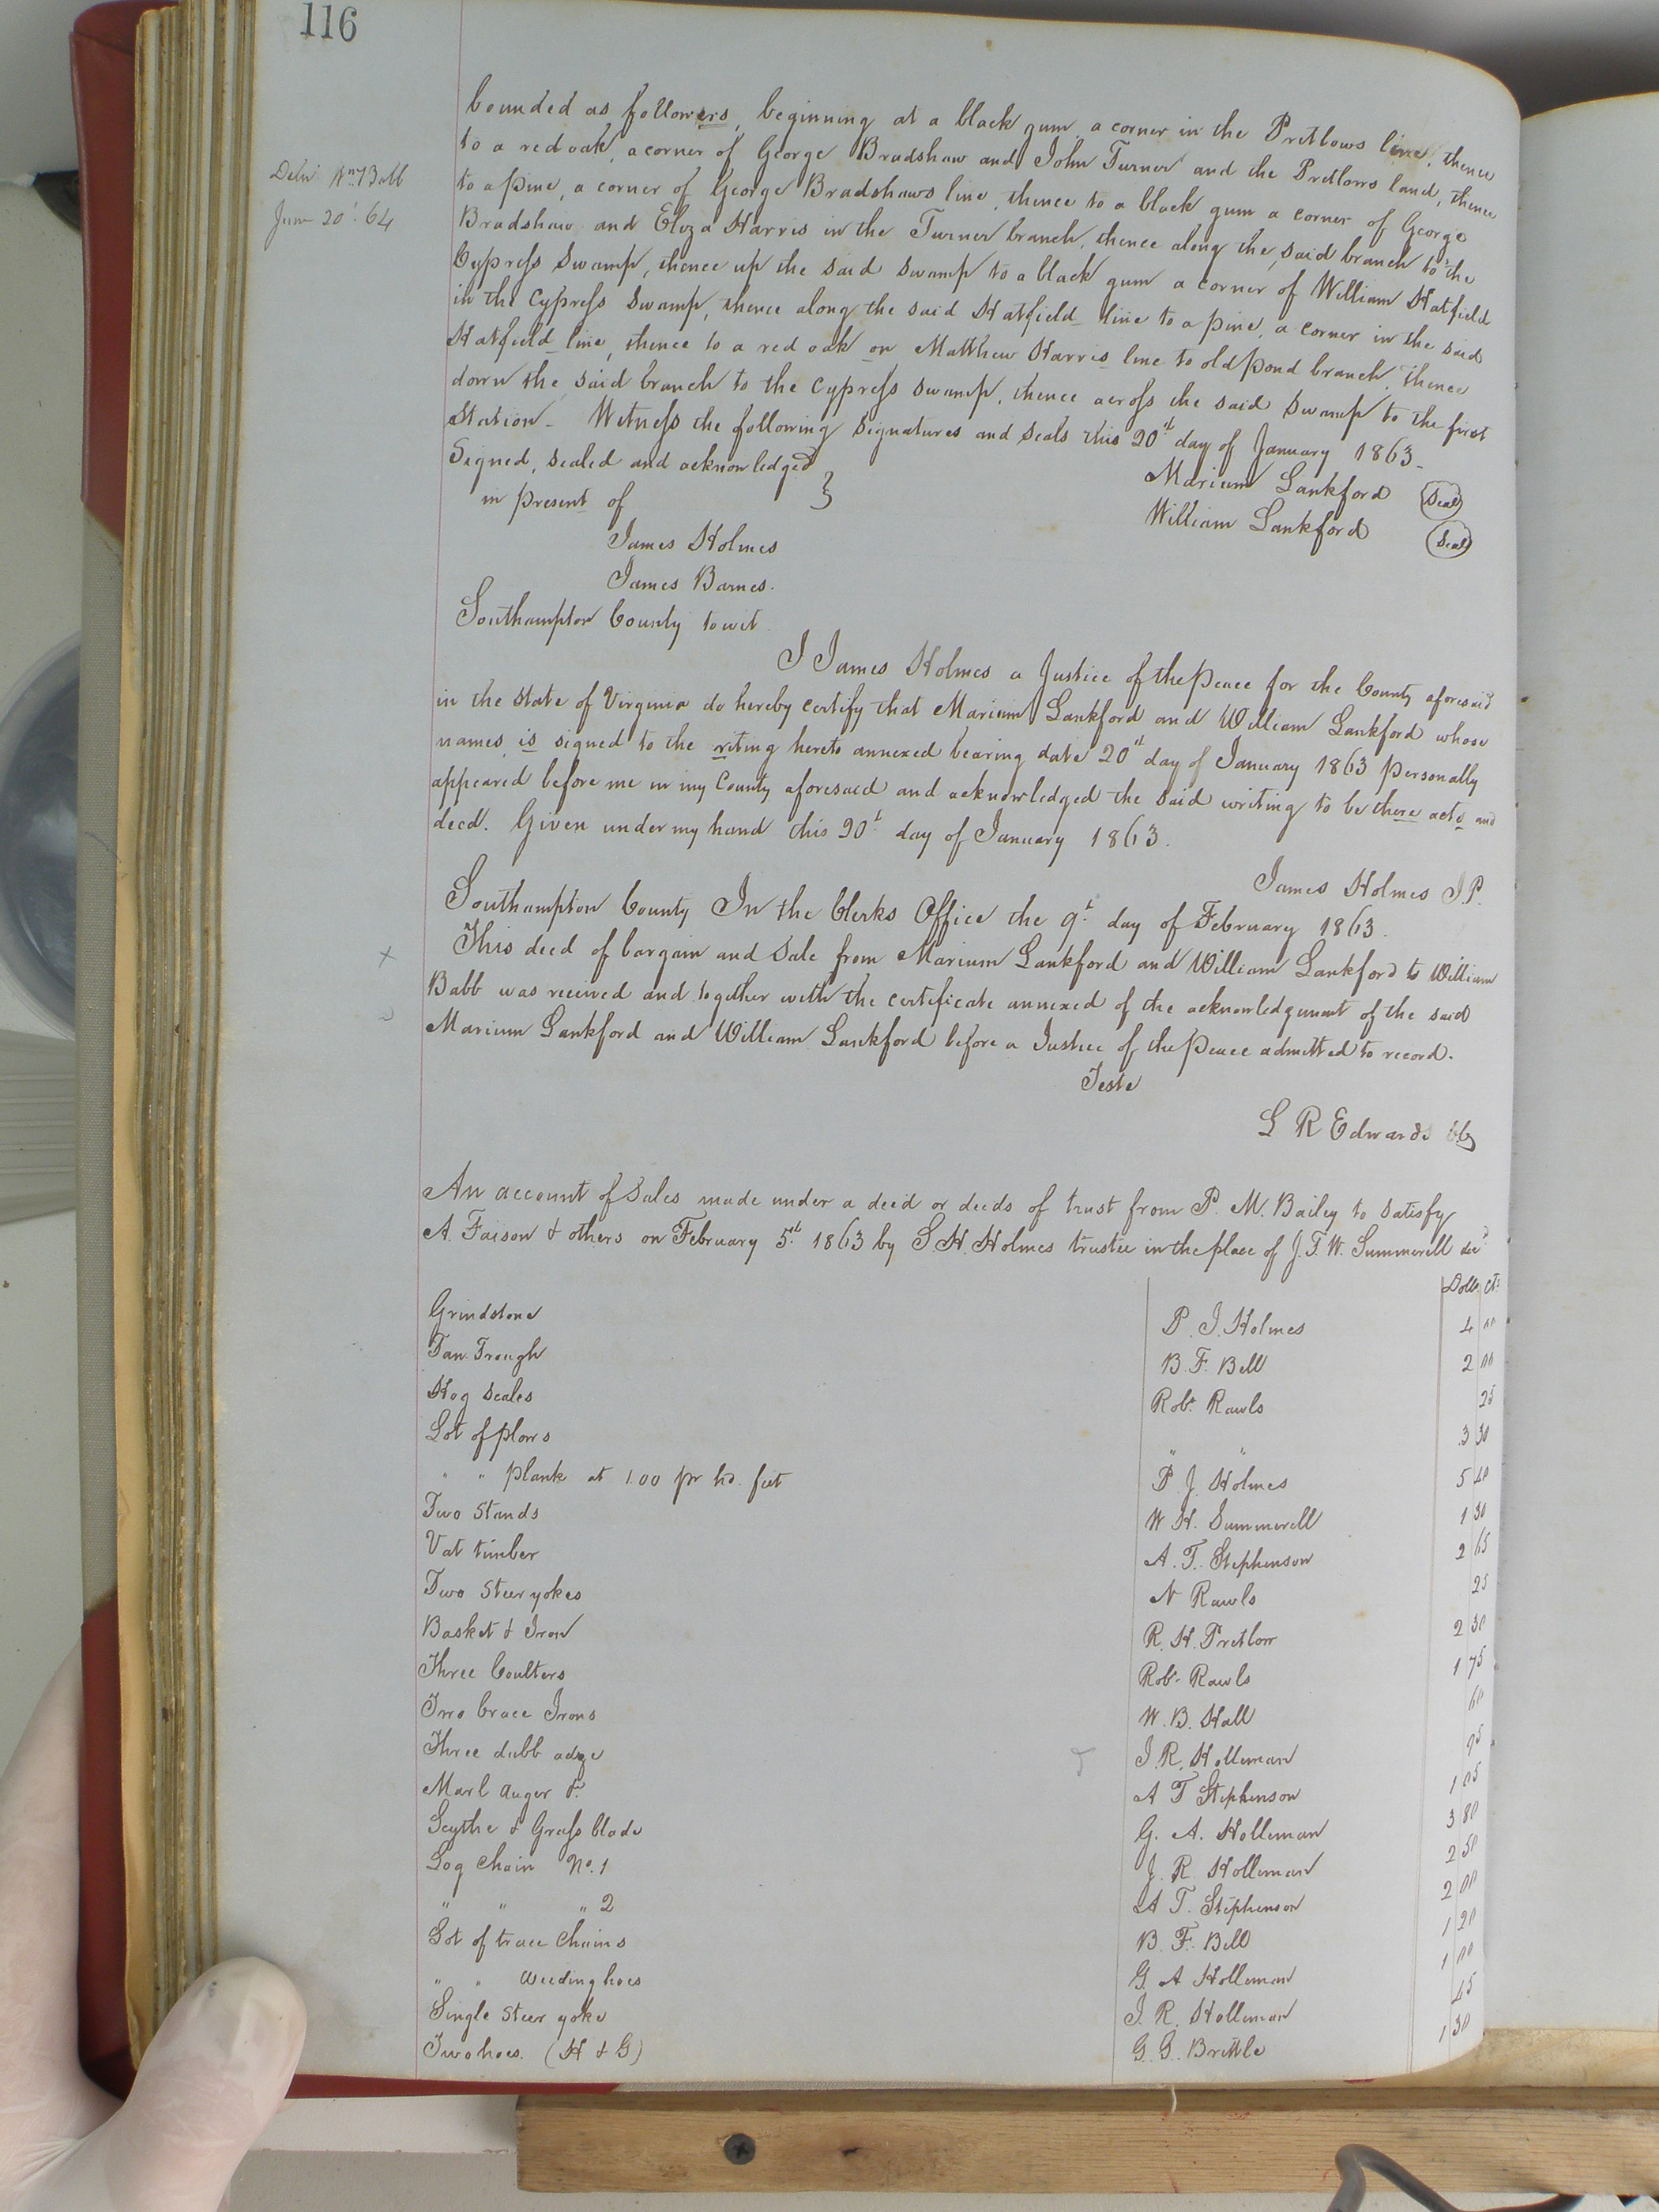 116
bounded as followers, beginning at a black gum, a corner in the Pretlows line, thence
to a red oak, a corner of George Bradshaw and John Turner and the Pretlows land, thence
Deliv Wm Babb
to a pine, a corner of George Bradshaws line, thence to a black gum a corner of George
June 20t 64
Bradshaw and Eliza Harris in the Turner branch, thence along the said branch to the
Cypress Swamp, thence up the said swamp to a black gum a corner of William Hatfield
in the Cypress Swamp, thence along the said Hatfield line to a pine, a corner in the said
Hatfield line, thence to a red oak on Matthew Harris line to old pond branch, thence
down the said branch to the Cypress swamp, thence across the said swamp to the first
Station - Witness the following signatures and seals this 20th day of January 1863
Signed, sealed and acknowledged
in present of
Marium Lankford (Seal)
William Lankford (Seal)
James Holmes
James Barnes.
Southampton County to wit
I James Holmes a Justice of the Peace for the County aforesaid
in the State of Virginia do hereby certify that Marium Lankford and William Lankford whose
names is signed to the riting hereto annexed bearing date 20th day of January 1863 personally
appeared before me in my County aforesaid and acknowledged the said writing to be there acts and
deed. Given under my hand this 20t day of January 1863.
James Holmes J.P.
Southampton County In the Clerks Office the 9t day of February 1863.
This deed of bargain and Sale from Marium Lankford and William Lankford to William
Babb was received and together with the certificate annexed of the acknowledgment of the said
Marium Lankford and William Lankford before a Justice of the Peace admitted to record.
Teste
L R Edwards
An account of Sales made under a deed or deeds of trust from P. M. Bailey to satisfy
A. Faison & others on February 5t 1863 by S. H. Holmes trustee in the place of J. T. W. Summerell decd
Dolls Cts
Grindstone P. J. Holmes 4 00
Tan Trough B. F. Bell 2 00
Hog Scales Robt Rawls 25
Lot of plows " " 3 30
" " plank at 1.00 pr hd. feet P. J. Holmes 5 40
Two Stands W H. Summerell 1 30
Vat timber A. T. Stephenson 2 65
Two Steer yokes N Rawls 25
Basket & Iron R. H. Pretlow 2 30
Three Coulters Robt Rawls 1 75
Two brace Irons W. B. Hall 60
Three dubb adze J. R. Holleman 95
Marl Auger &c A T Stephenson 1 05
Scythe & Grass blade G. A. Holleman 3 80
Log Chain No. 1 J. R. Holleman 2 50
" " " 2 A T. Stephenson 2 00
Lot of trace Chains B. F. Bell 1 20
" " weeding hoes G. A Holleman 1 00
Single Steer yoke J. R. Holleman 45
Two hoes. (H & G) G. G. Brittle 1 30